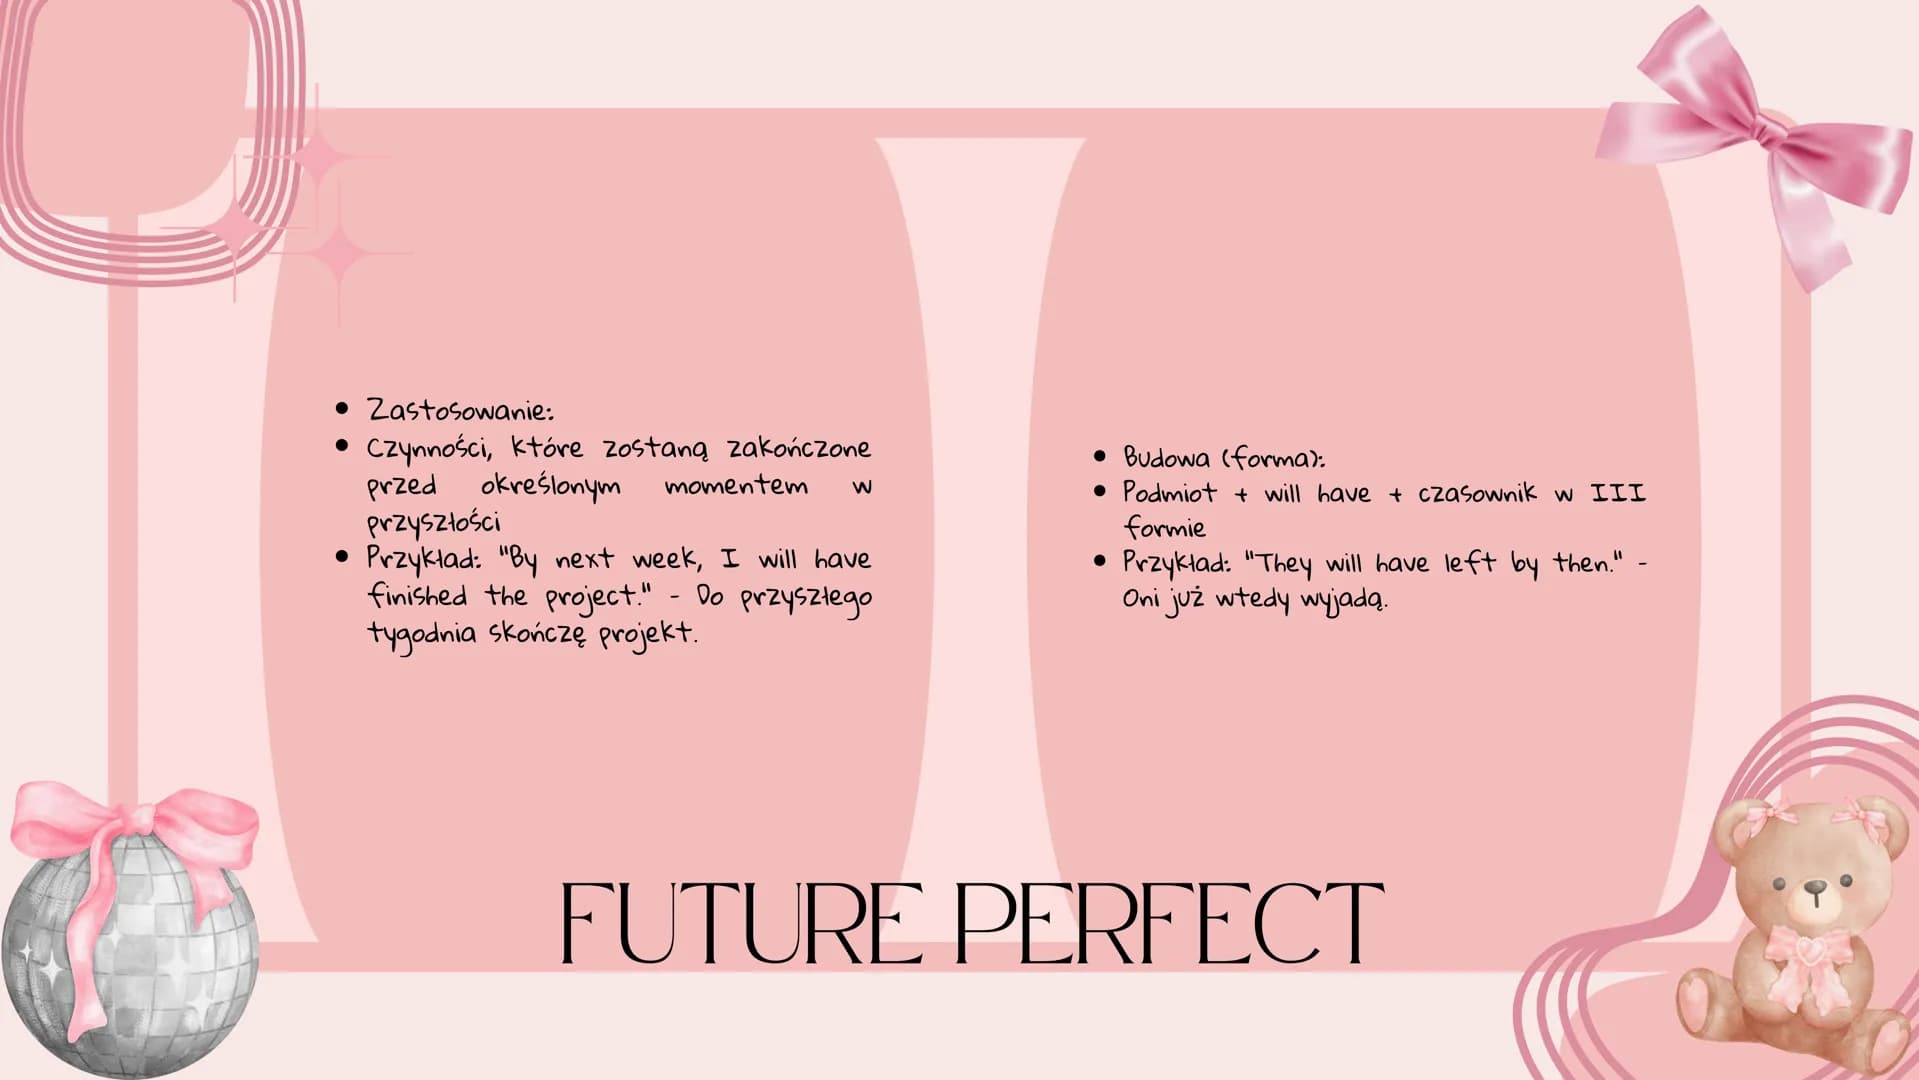 Zastosowanie:
Czynności, które zostaną zakończone
przed określonym momentem w
przyszłości
Przykład: "By next week, I will have
finished the project." - Do przyszłego
tygodnia skończę projekt.
Budowa (forma):
Podmiot + will have + czasownik w III
formie
Przykład: "They will have left by then." -
Oni już wtedy wyjadą.
FUTURE PERFECT